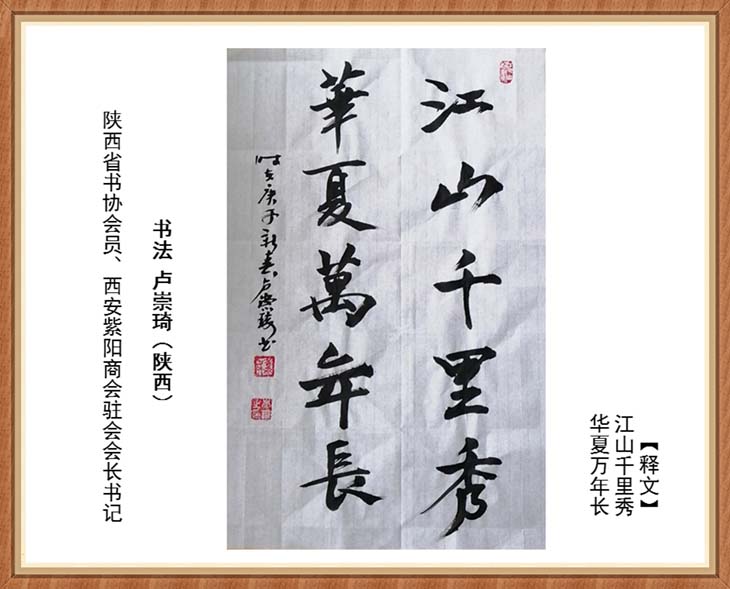 江山千里秀
華夏萬年長
时在庚子新春卢崇琦书
【释文】
江山千里秀
华夏万年长
书法 卢崇琦（陕西）
陕西省书协会员、西安紫阳商会驻会会长书记